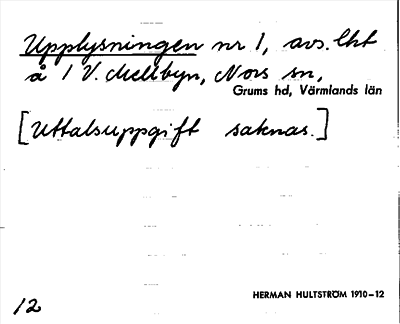 Upplysningen nr 1, avs. lht
å 1 V. Mellbyn, Nors sn,
Grums hd, Värmlands län
[Uttalsuppgift saknas.]
HERMAN HULTSTRÖM 1910-12
12